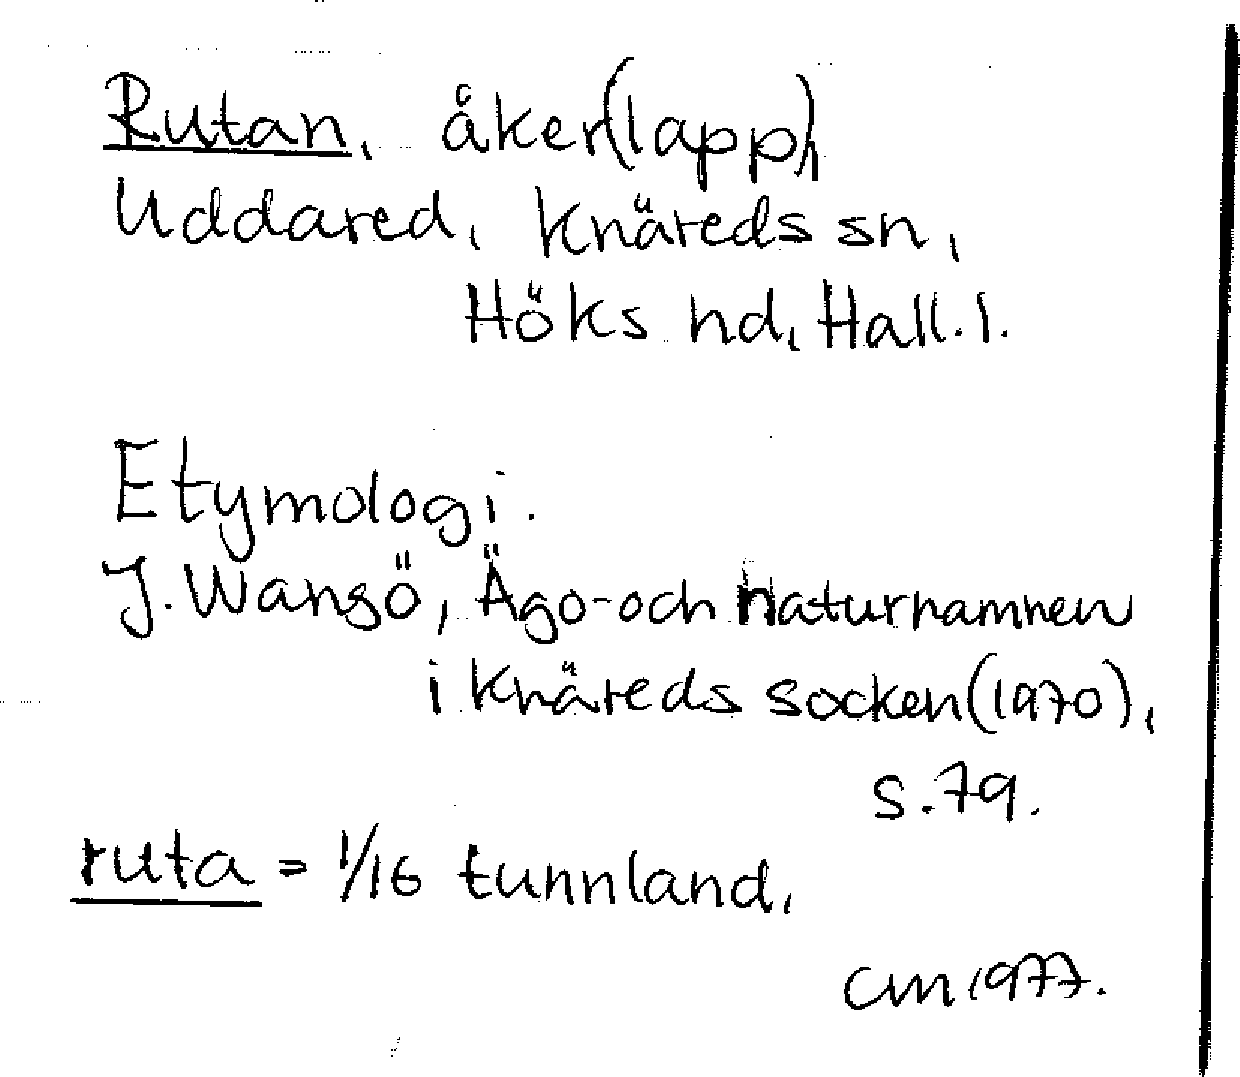 Rutan, åker(lapp),
Uddared, Knäreds sn,
Höks hd, Hall. l.
Etymologi.
J. Wangö, Ägo- och naturnamnen
i Knäreds socken (1970),
s. 79.
ruta = 1/16 tunnland,
CM 1977.